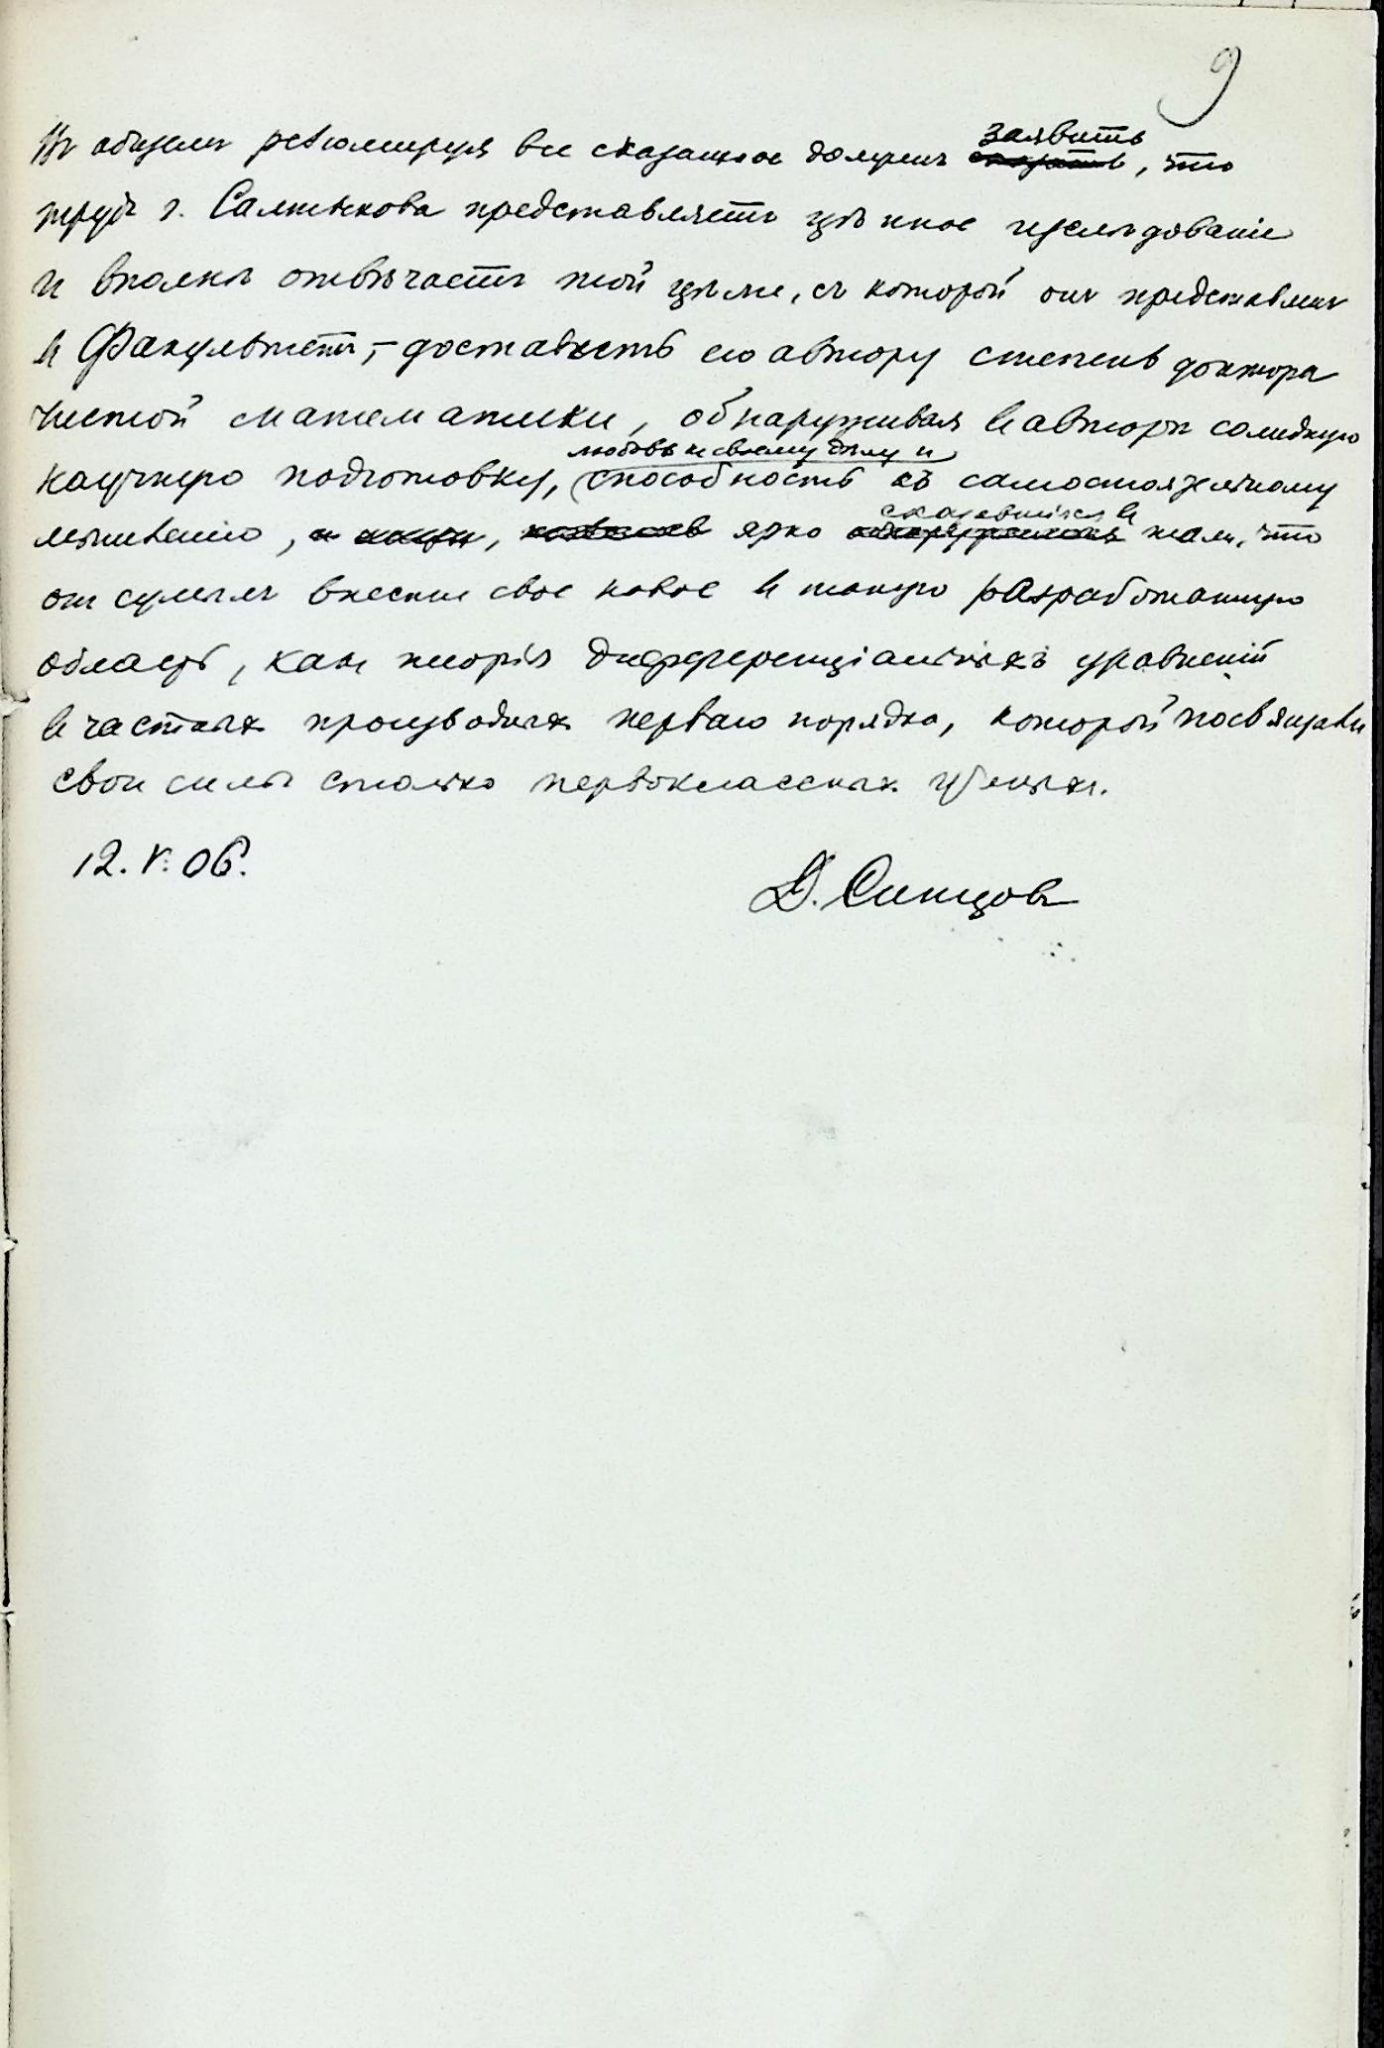 9
Въ общемъ резюмируя все сказанное долженъ заявить, что
трудъ г. Салтыкова представляетъ цѣнное изслѣдованіе
и вполнѣ отвѣчаетъ той цѣли, съ которой онъ представленъ
въ Факультетъ, – доставить его автору степень доктора
чистой математики, обнаруживая въ авторѣ солидную
научную подготовку, любовь къ своему дѣлу и способность къ самостоятельному
мышленію, ярко сказавшіяся въ томъ, что
онъ сумѣлъ внести свое новое въ такую разработанную
область, какъ теорія дифференціальныхъ уравненій
въ частныхъ производныхъ перваго порядка, которой посвящали
свои силы столько первоклассныхъ ученыхъ.
12.V.06.
Д. Синцовъ